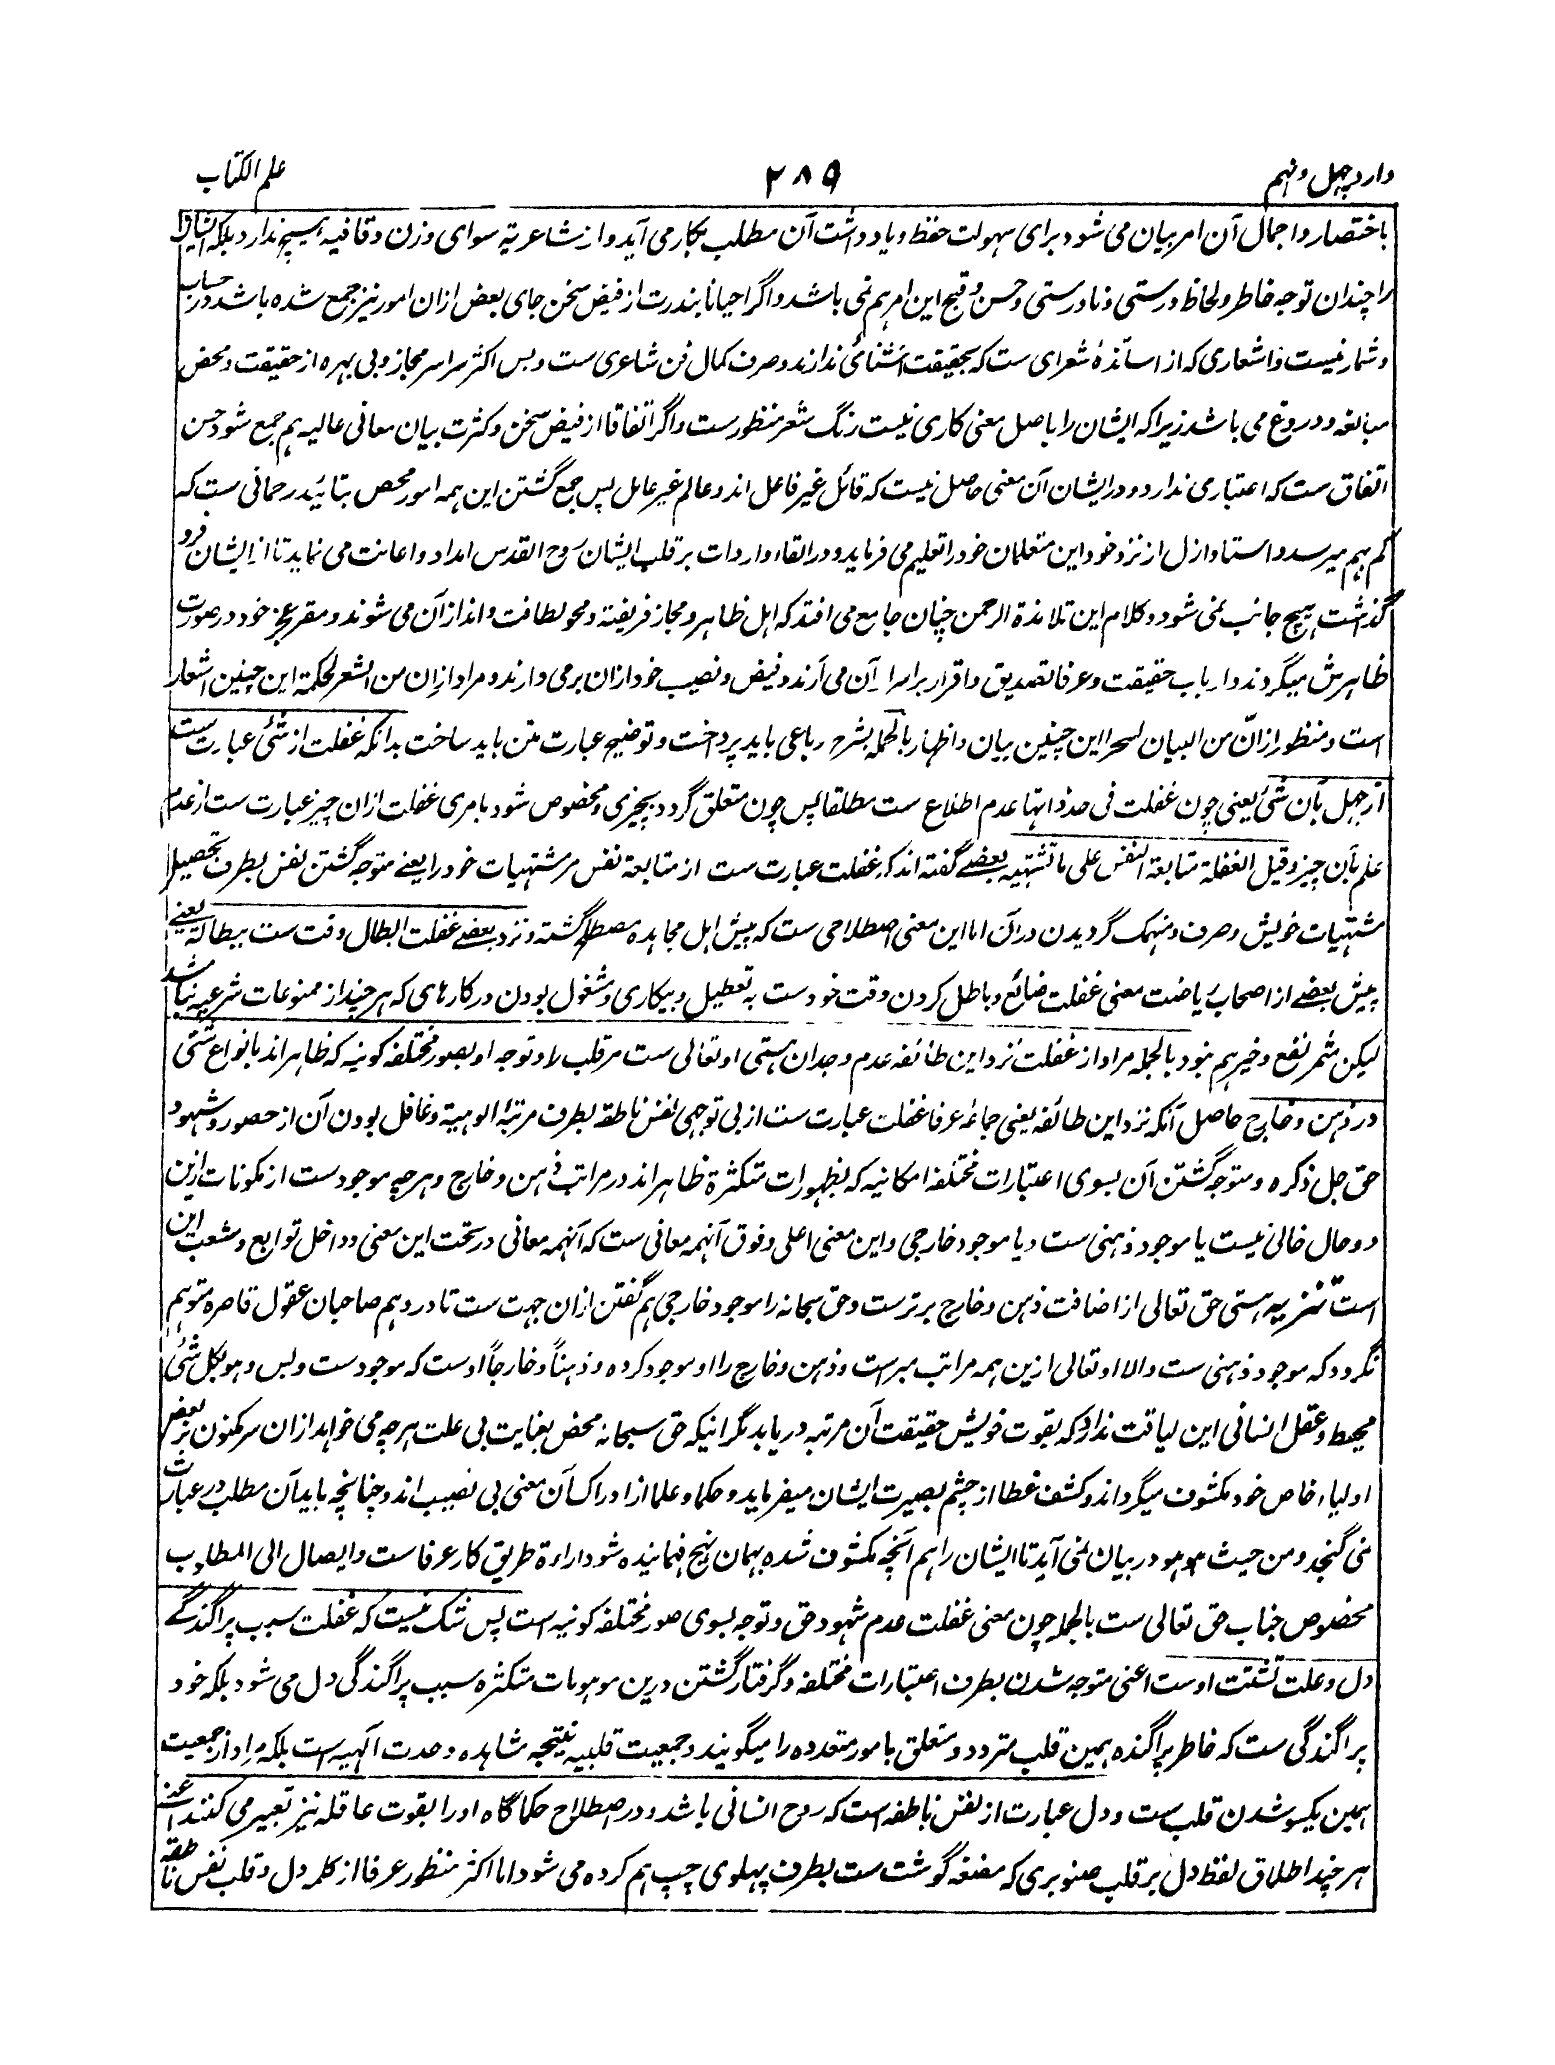 وارد چهل و نهم ۲۸۹ علم الکتاب
باختصار و اجمال آن امر بیان می شود برای سهولت حفظ و یاد داشت آن مطلب بکار می آید و از شاعریة سوای وزن و قافیه هیچ ندارد بلکه ایشان
را چندان توجه خاطر و لحاظ درستی و نادرستی و حسن و قبح این امر هم نمی باشد و اگر احیانا بندرت از فیض سخن جای بعض ازان امور نیز جمع شده باشد در حساب
و شمار نیست و اشعاری که از اساتذهٔ شعرای ست که بحقیقت آشنائی ندارند و صرف کمال فن شاعری ست و بس اکثر سراسر مجاز و بی بهره از حقیقت و محض
مبالغه و دروغ می باشد زیرا که ایشان را باصل معنی کاری نیست رنگ شعر منظورست و اگر اتفاقا از فیض سخن و کثرت بیان معانی عالیه هم جمع شود حسن
اتفاق ست که اعتباری ندارد و در ایشان آن معنی حاصل نیست که قائل غیر فاعل اند و عالم غیر عامل پس جمع گشتن این همه امور محض بتائید رحمانی ست که
کم بهم میرسد و استاد ازل از نزد خود این متعلمان خود را تعلیم می فرماید و در القاء واردات بر قلب ایشان روح القدس امداد و اعانت می نماید تا از ایشان فرو
گذاشت هیچ جانب نمی شود و کلام این تلامذة الرحمن چنان جامع می افتد که اهل ظاهر و مجاز فریفته و محو لطافت و انداز آن می شوند و مقر بعجز خود در صورت
ظاهرش میگردند و ارباب حقیقت و عرفا تصدیق و اقرار بر اسرار آن می آرند و فیض و نصیب خود ازان بر می دارند و مراد از ان من الشعر لحکمة این چنین اشعار
است و منظور از انّ من البیان لسحرا این چنین بیان و اظهار بالجمله بشرح رباعی باید پرداخت و توضیح عبارت متن باید ساخت بدانکه غفلت از شئ عبارت ست
از جهل بآن شئ یعنی چون غفلت فی حد ذاتها عدم اطلاع ست مطلقا پس چون متعلق گردد بچیزی و مخصوص شود بامری غفلت ازان چیز عبارت ست از عدم
علم بآن چیز و قیل الغفلة متابعة النفس علی ما تشتهیه بعضے گفته اند که غفلت عبارت ست از متابعة نفس مر مشتهیات خود را یعنے متوجه گشتن نفس بطرف تحصیل
مشتهیات خویش و صرف و منهمک گردیدن در آن اما این معنی اصطلاحی ست که پیش اهل مجاهده مصطلح گشته و نزد بعضے غفلت ابطال وقت ست ببطالة یعنے
پیش بعضے از اصحاب ریاضت معنی غفلت ضائع و باطل کردن وقت خودست به تعطیل و بیکاری و مشغول بودن در کارهای که هر چند از ممنوعات شرعیه نباشد
لیکن مثمر نفع و خیر هم نبود بالجمله مراد از غفلت نزد این طائفه عدم وجدان هستی او تعالی ست مر قلب را و توجه او بصور مختلفه کونیه که ظاهر اند بانواع شتی
در ذهن و خارج حاصل آنکه نزد این طائفه یعنی جماعهٔ عرفا غفلت عبارت ست از بی توجهی نفس ناطقه بطرف مرتبهٔ الوهیة و غافل بودن آن از حضور و شهود
حق جل ذکره و متوجه گشتن آن بسوی اعتبارات مختلفه امکانیه که بظهورات متکثرة ظاهر اند در مراتب ذهن و خارج و هر چه موجود ست از مکونات ازین
دو حال خالی نیست یا موجود ذهنی ست و یا موجود خارجی و این معنی اعلی و فوق آنهمه معانی ست که آنهمه معانی در تحت این معنی و داخل توابع و شعب این
است تنزیه هستی حق تعالی از اضافت ذهن و خارج برترست و حق سبحانه را موجود خارجی هم گفتن ازان جهت ست تا در وهم صاحبان عقول قاصره متوهم
نگردد که موجود ذهنی ست و الا او تعالی ازین همه مراتب مبراست و ذهن و خارج را او موجود کرده و ذهناً و خارجاً اوست که موجود ست و بس و هو بکل شئ
محیط و عقل انسانی این لیاقت ندارد که بقوت خویش حقیقت آن مرتبه دریابد مگر اینکه حق سبحانه محض بعنایت بی علت هر چه می خواهد ازان سر مکنون بر بعض
اولیاء خاص خود مکشوف میگرداند و کشف غطا از چشم بصیرت ایشان میفرماید و حکما و علما از ادراک آن معنی بی نصیب اند و چنانچه باید آن مطلب در عبارت
نمی گنجد و من حیث هو هو در بیان نمی آید تا ایشان را هم آنچه مکشوف شده بهمان نهج فهمانیده شود اراءة طریق کار عرفاست و ایصال الی المطلوب
مخصوص جناب حق تعالی ست بالجمله چون معنی غفلت عدم شهود حق و توجه بسوی صور مختلفه کونیه است پس شک نیست که غفلت سبب پراگندگے
دل و علت تشتت اوست اعنی متوجه شدن بطرف اعتبارات مختلفه و گرفتار گشتن درین موهومات متکثره سبب پراگندگی دل می شود بلکه خود
پراگندگی ست که خاطر پراگنده همین قلب متردد و متعلق بامور متعدده را میگویند و جمعیت قلبیه نتیجه مشاهده وحدت آلهیه است بلکه مراد از جمعیت
همین یکسو شدن قلب ست و دل عبارت از نفس ناطقه است که روح انسانی باشد و در اصطلاح حکما گاه او را بقوت عاقله نیز تعبیر می کنند
هر چند اطلاق لفظ دل بر قلب صنوبری که مضغه گوشت ست بطرف پهلوی چپ هم کرده می شود اما اکثر منظور عرفا از کلمه دل و قلب نفس ناطقه